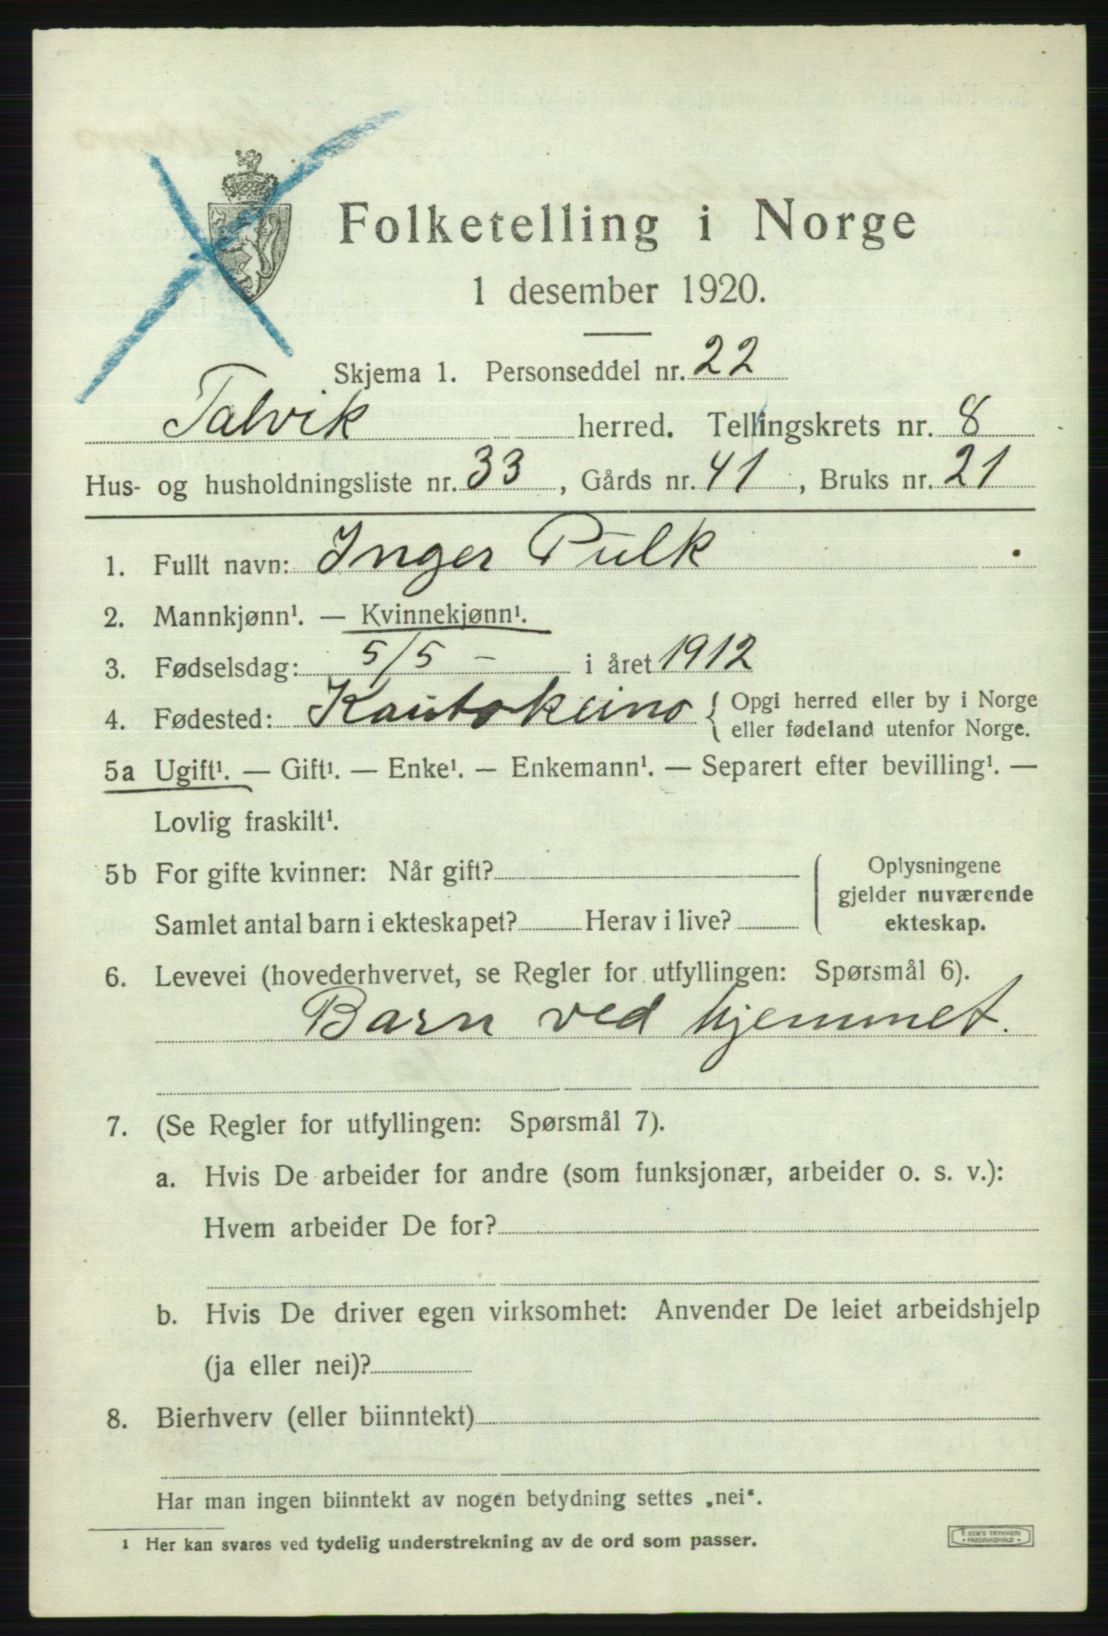 Folketelling i Norge
1 desember 1920.
Skjema 1. Personseddel nr. 22
Talvik herred. Tellingskrets nr. 8
Hus- og husholdningsliste nr. 33, Gårds nr. 41, Bruks nr. 21
1. Fullt navn: Inger Pulk
2. Mannkjønn¹. — Kvinnekjønn¹.
3. Fødselsdag: 5/5 - i året 1912
4. Fødested: Kautokeino { Opgi herred eller by i Norge
eller fødeland utenfor Norge.
5a Ugift¹. — Gift¹. — Enke¹. — Enkemann¹. — Separert efter bevilling¹. —
Lovlig fraskilt¹.
5b For gifte kvinner: Når gift?
Samlet antal barn i ekteskapet? Herav i live?
Oplysningene
gjelder nuværende
ekteskap.
6. Levevei (hovederhvervet, se Regler for utfyllingen: Spørsmål 6).
Barn ved hjemmet.
7. (Se Regler for utfyllingen: Spørsmål 7).
a. Hvis De arbeider for andre (som funksjonær, arbeider o. s. v.):
Hvem arbeider De for?
b. Hvis De driver egen virksomhet: Anvender De leiet arbeidshjelp
(ja eller nei)?
8. Bierhverv (eller biinntekt)
Har man ingen biinntekt av nogen betydning settes „nei“.
1 Her kan svares ved tydelig understrekning av de ord som passer.